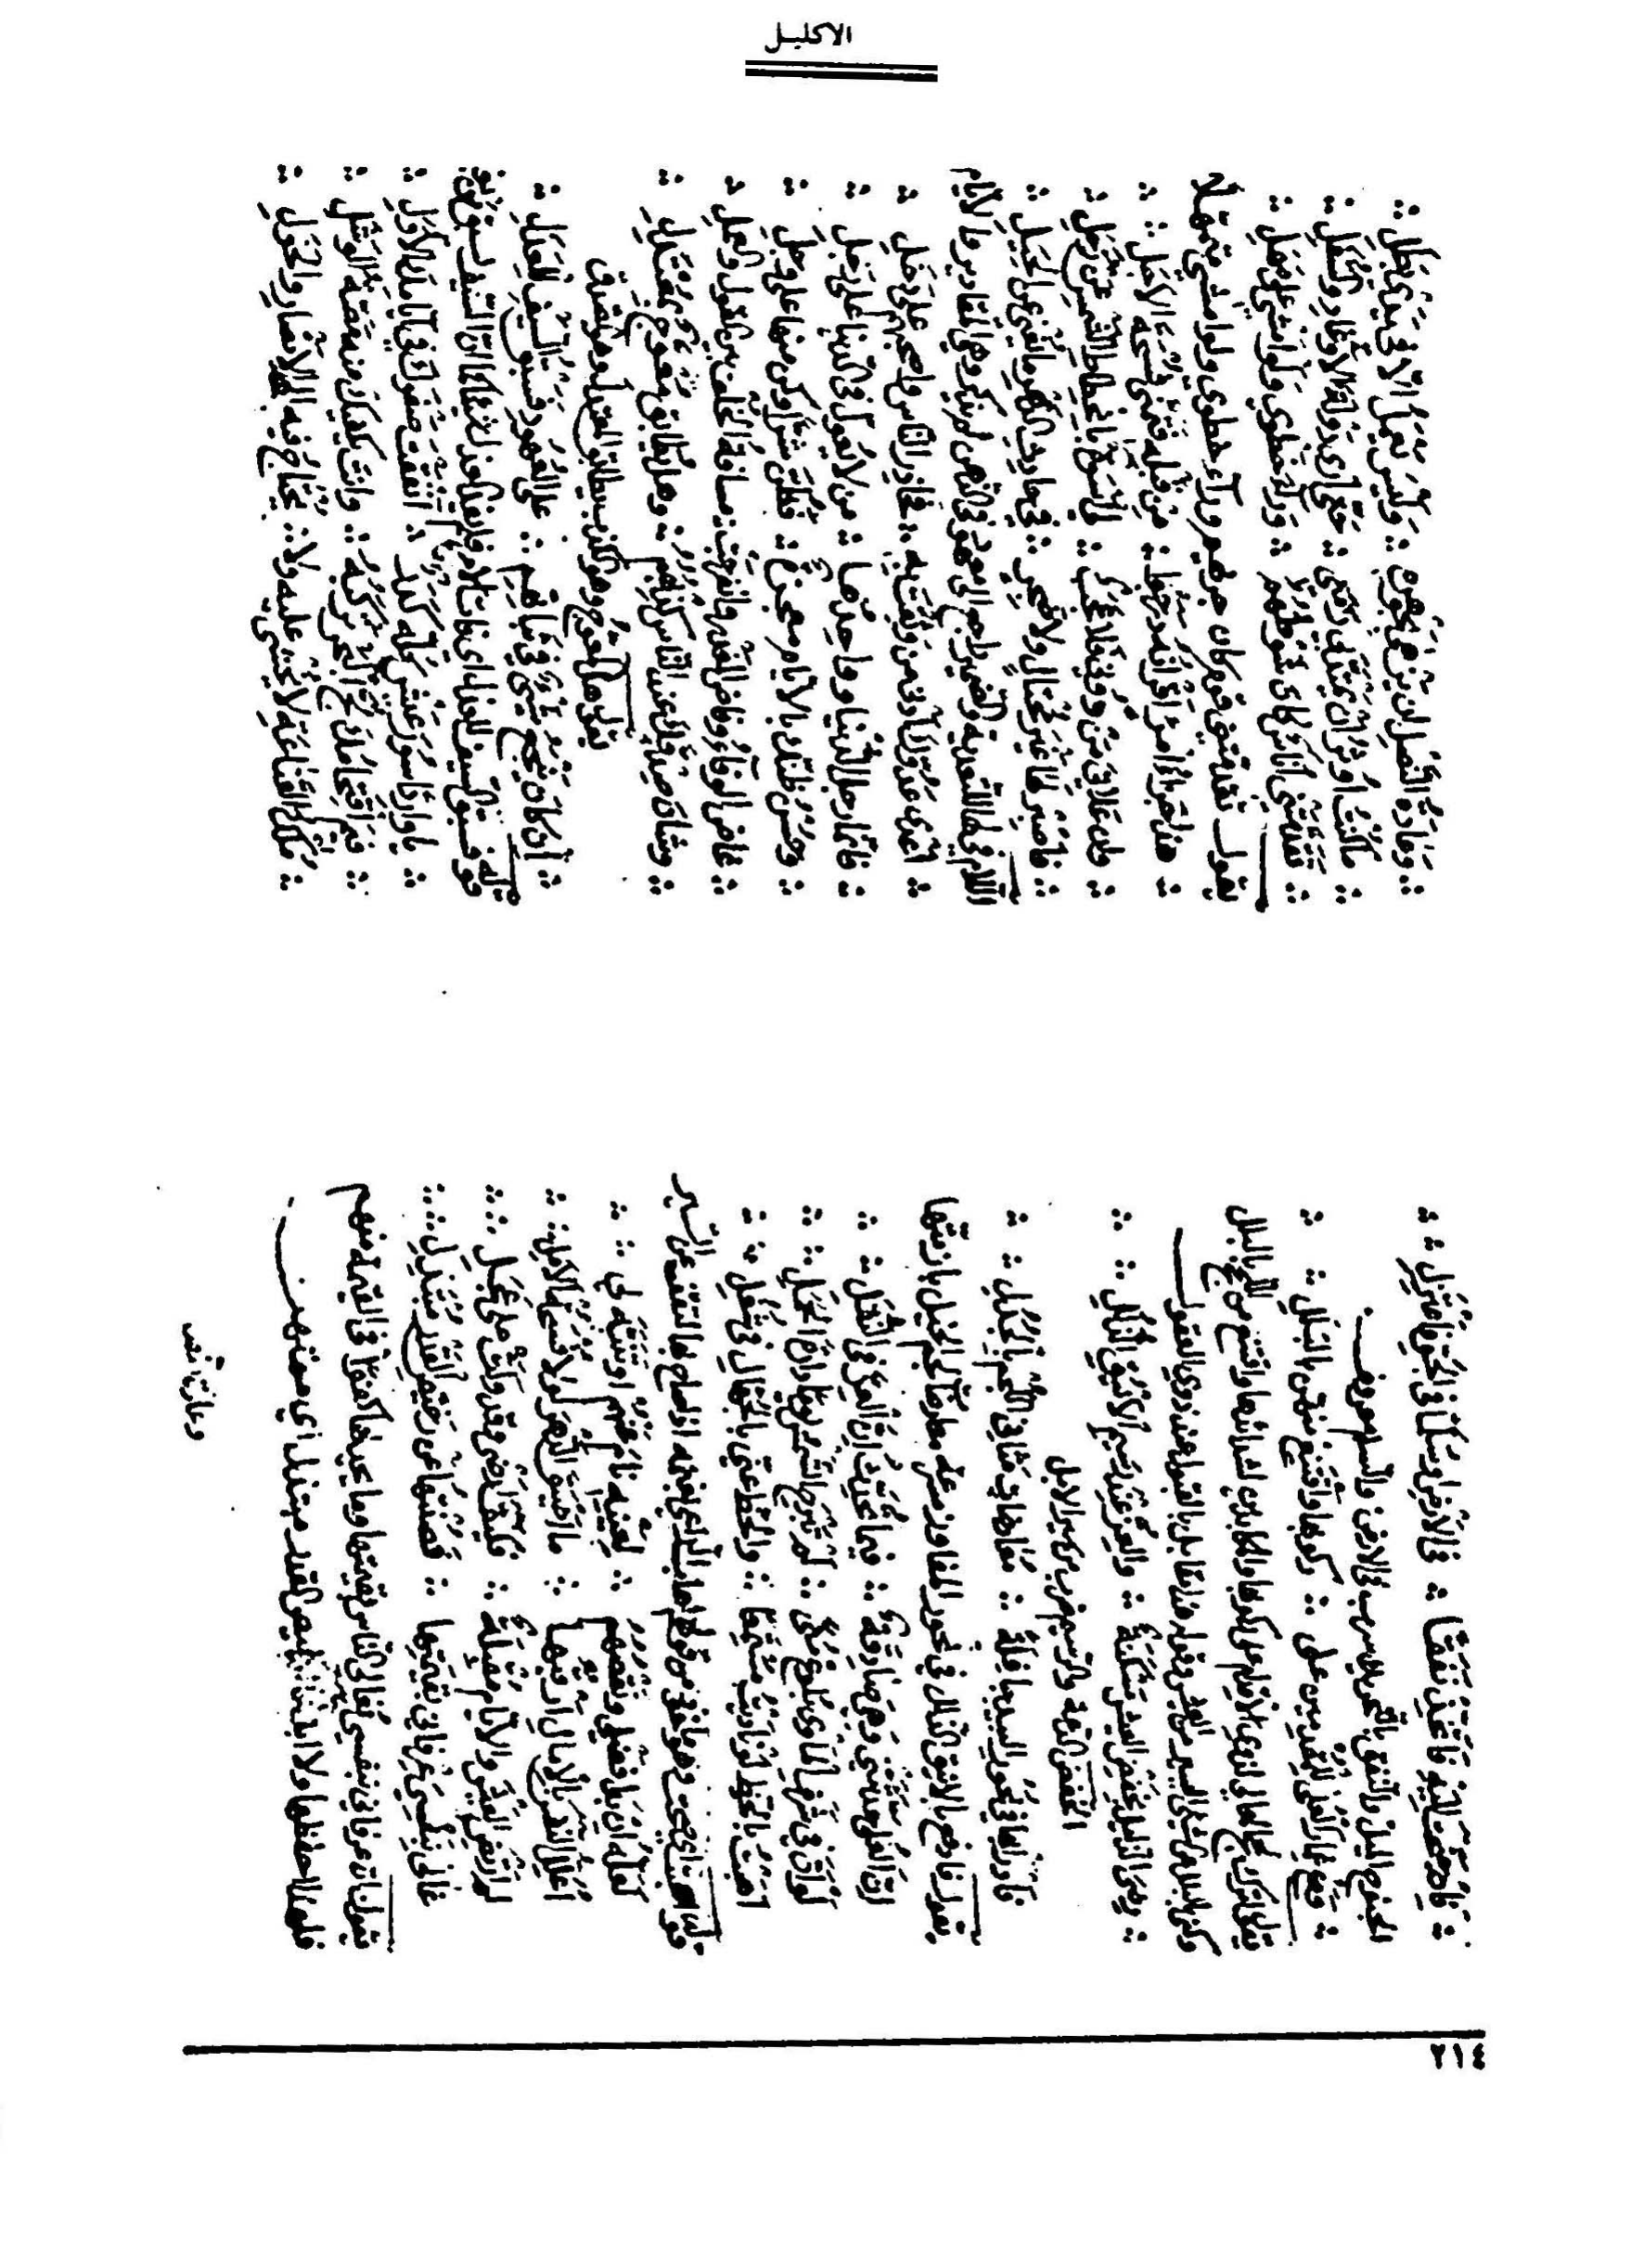 الاكليل
فَإِن جَنَحْتَ إِلَيْهِ فَاتَّخِذْ نَفَقًا ∴ فِي الأَرْضِ أَو سُلَّمًا فِي الجَوِّ فَاعْتَزِلِ
الجنح الميل والنفق بالتحريك سرب في الارض والسلم معروف
وَدَعْ غِمَارَ العُلَى لِلْمُقْدِمِينَ عَلَى ∴ رُكُوبِهَا وَاقْتَنِعْ مِنْهُنَّ بِالبَلَلِ
يقول اترك لجج المعالي لذوي الاقدام على ركوبها والمكابدين لشدائدها واقتنع من اللجج بالبلل
وكنى بالبلل عن الشيء اليسير من العيش وقوله هذا مقابل بالقبول عند ذوي العقول
رِضَى الذَّلِيلِ بِخَفْضِ العَيْشِ مَسْكَنَةٌ ∴ وَالعِزُّ عِنْدَ رَسِيمِ الأَيْنُقِ الذُّلُلِ
الخفض الدعة والرسيم ضرب من سير الابل
فَادْرَأْ بِهَا فِي نُحُورِ البِيدِ جَافِلَةً ∴ مُعَارِضَاتٍ مَثَانِي اللُّجْمِ بِالجُدُلِ
يقول فادفع بالاينق الذلل في نحور المفاوز مسرعة معارضات لجم الخيل بازمتها
إِنَّ العُلَى حَدَّثَتْنِي وَهِيَ صَادِقَةٌ ∴ فِيمَا تُحَدِّثُ إِنَّ العِزَّ فِي النُّقَلِ
لَوْ أَنَّ فِي شَرَفِ المَأْوَى بُلُوغَ مُنًى ∴ لَمْ تَبْرَحِ الشَّمْسُ يَوْمًا دَارَةَ الحَمَلِ
أَهَبْتُ بِالحَظِّ لَوْ نَادَيْتُ مُسْتَمِعًا ∴ وَالحَظُّ عَنِّي بِالجُهَّالِ فِي شُغُلِ
قوله اهبت اي صحت وهو ماخوذ من قولهم اهاب الراعي بغنمه اذا صاح بها لتقف عن السير
لَعَلَّهُ إِنْ بَدَا فَضْلِي وَنَقْصُهُمُ ∴ لِعَيْنِهِ نَامَ عَنْهُمْ أَوْ تَنَبَّهَ لِي
أُعَلِّلُ النَّفْسَ بِالآمَالِ أَرْقُبُهَا ∴ مَا أَضْيَقَ الدَّهْرَ لَوْلَا فُسْحَةُ الأَمَلِ
لَمْ أَرْتَضِ العَيْشَ وَالأَيَّامُ مُقْبِلَةٌ ∴ فَكَيْفَ أَرْضَى وَقَدْ وَلَّتْ عَلَى عَجَلِ
غَالَى بِنَفْسِيَ عِرْفَانِي بِقِيمَتِهَا ∴ فَصُنْتُهَا عَنْ رَخِيصِ القَدْرِ مُبْتَذَلِ
يقول ان عرفاني بنفسي يغالي الناس بقيمتها كفؤا في القيمة منهم
فلهذا احفظها ولا ابذلها لرخيص القدر مبتذل اي ممتهن
وعادة النصـ
وَعَادَةُ النَّصْلِ أَنْ يُزْهَى بِجَوْهَرِهِ ∴ وَلَيْسَ يَعْمَلُ إِلَّا فِي يَدَيْ بَطَلِ
مَا كُنْتُ أُوثِرُ أَنْ يَمْتَدَّ بِي زَمَنِي ∴ حَتَّى أَرَى دَوْلَةَ الأَوْغَادِ وَالسِّفَلِ
تَقَدَّمَتْنِي أُنَاسٌ كَانَ شَوْطُهُمُ ∴ وَرَاءَ خَطْوِي وَلَوْ أَمْشِي عَلَى مَهَلِ
يقول تقدمتني قوم كان جريهم وراء خطوي ولو امشي متمهلا
هَذَا جَزَاءُ امْرِئٍ أَقْرَانُهُ دَرَجُوا ∴ مِنْ قَبْلِهِ فَتَمَنَّى فُسْحَةَ الأَجَلِ
وَإِنْ عَلَانِيَ مَنْ دُونِي فَلَا عَجَبٌ ∴ لِي أُسْوَةٌ بِانْحِطَاطِ الشَّمْسِ عَنْ زُحَلِ
فَاصْبِرْ لَهَا غَيْرَ مُحْتَالٍ وَلَا ضَجِرٍ ∴ فِي حَادِثِ الدَّهْرِ مَا يُغْنِي عَنِ الحِيَلِ
اللام في لها والضمير راجع الى معهود في الذهن لم يذكر وهي المقادير والايام
أَعْدَى عَدُوِّكَ أَدْنَى مَنْ وَثِقْتَ بِهِ ∴ فَحَاذِرِ النَّاسَ وَاصْحَبْهُمْ عَلَى دَخَلِ
فَإِنَّمَا رَجُلُ الدُّنْيَا وَوَاحِدُهَا ∴ مَنْ لَا يُعَوِّلُ فِي الدُّنْيَا عَلَى رَجُلِ
وَحُسْنُ ظَنِّكَ بِالأَيَّامِ مَعْجَزَةٌ ∴ فَظُنَّ شَرًّا وَكُنْ مِنْهَا عَلَى وَجَلِ
غَاضَ الوَفَاءُ وَفَاضَ الغَدْرُ وَانْفَرَجَتْ ∴ مَسَافَةُ الخُلْفِ بَيْنَ القَوْلِ وَالعَمَلِ
وَشَانَ صِدْقَكَ عِنْدَ النَّاسِ كِذْبُهُمُ ∴ وَهَلْ يُطَابَقُ مُعْوَجٌّ بِمُعْتَدِلِ
يقول هل المعوج وهو الكذب يطابق المعتدل وهو الصدق
إِنْ كَانَ يَنْجَعُ شَيْءٌ فِي ثَبَاتِهِمُ ∴ عَلَى العُهُودِ فَسَبْقُ السَّيْفِ لِلْعَذَلِ
قوله فسبق السيف للعذل اي
يَا وَارِدًا سُؤْرَ عَيْشٍ كُلُّهُ كَدَرٌ ∴ أَنْفَقْتَ صَفْوَكَ فِي أَيَّامِكَ الأُوَلِ
فِيمَ اقْتِحَامُكَ لُجَّ البَحْرِ تَرْكَبُهُ ∴ وَأَنْتَ يَكْفِيكَ مِنْهُ مَصَّةُ الوَشَلِ
مُلْكُ القَنَاعَةِ لَا يُخْشَى عَلَيْهِ وَلَا ∴ يُحْتَاجُ فِيهِ إِلَى الأَنْصَارِ وَالخَوَلِ
٢١٤